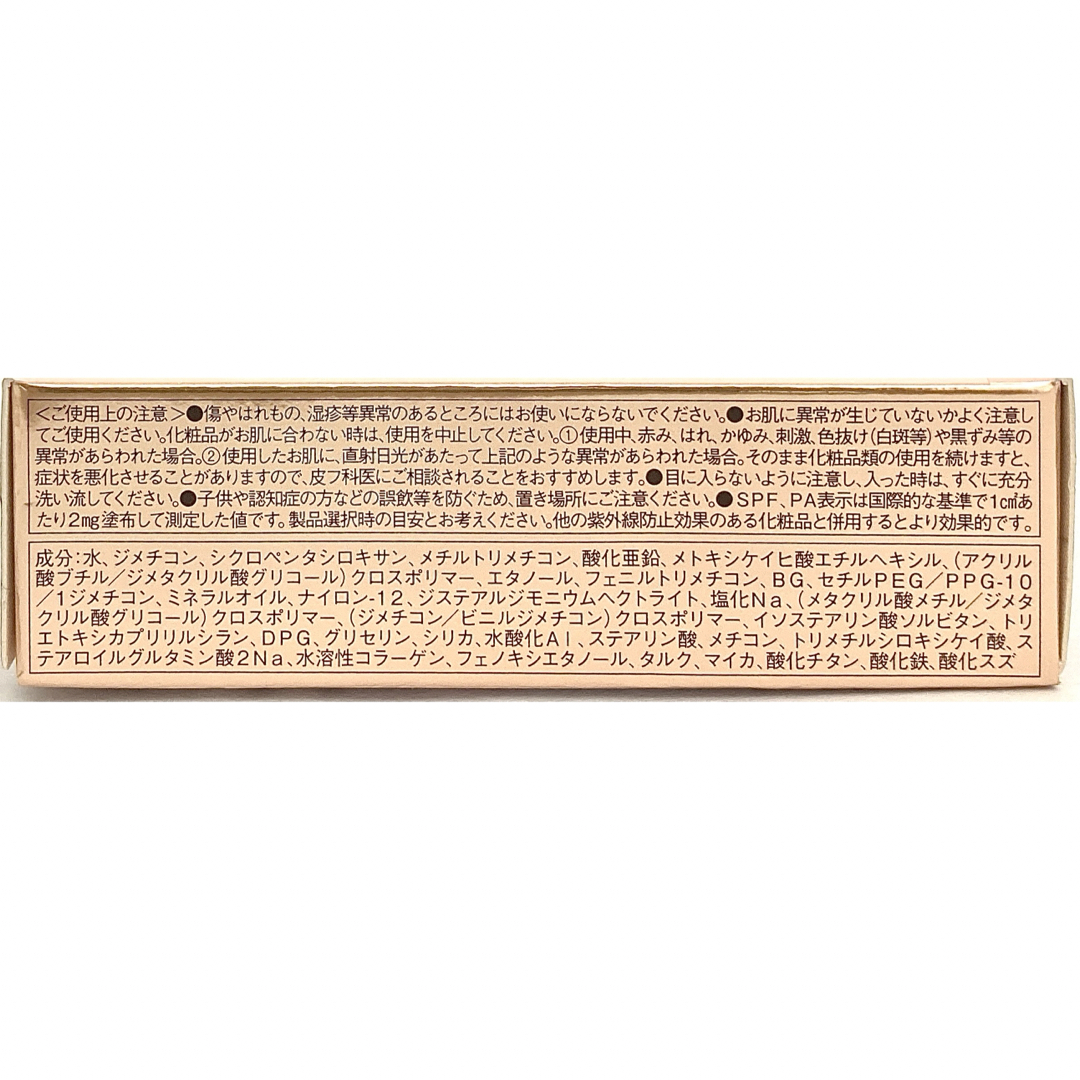 ＜ご使用上の注意＞●傷やはれもの、湿疹等異常のあるところにはお使いにならないでください。●お肌に異常が生じていないかよく注意し
てご使用ください。化粧品がお肌に合わない時は、使用を中止してください。①使用中、赤み、はれ、かゆみ、刺激、色抜け(白斑等)や黒ずみ等の
異常があらわれた場合。②使用したお肌に、直射日光があたって上記のような異常があらわれた場合。そのまま化粧品類の使用を続けますと、
症状を悪化させることがありますので、皮フ科医にご相談されることをおすすめします。●目に入らないように注意し、入った時は、すぐに充分
洗い流してください。●子供や認知症の方などの誤飲等を防ぐため、置き場所にご注意ください。●SPF、PA表示は国際的な基準で1c㎡あ
たり2mg塗布して測定した値です。製品選択時の目安とお考えください。他の紫外線防止効果のある化粧品と併用するとより効果的です。
成分：水、ジメチコン、シクロペンタシロキサン、メチルトリメチコン、酸化亜鉛、メトキシケイヒ酸エチルヘキシル、(アクリル
酸ブチル／ジメタクリル酸グリコール)クロスポリマー、エタノール、フェニルトリメチコン、BG、セチルPEG／PPG-10
／1ジメチコン、ミネラルオイル、ナイロン-12、ジステアルジモニウムヘクトライト、塩化Na、(メタクリル酸メチル／ジメタ
クリル酸グリコール)クロスポリマー、(ジメチコン／ビニルジメチコン)クロスポリマー、イソステアリン酸ソルビタン、トリ
エトキシカプリリルシラン、DPG、グリセリン、シリカ、水酸化Al、ステアリン酸、メチコン、トリメチルシロキシケイ酸、ス
テアロイルグルタミン酸2Na、水溶性コラーゲン、フェノキシエタノール、タルク、マイカ、酸化チタン、酸化鉄、酸化スズ